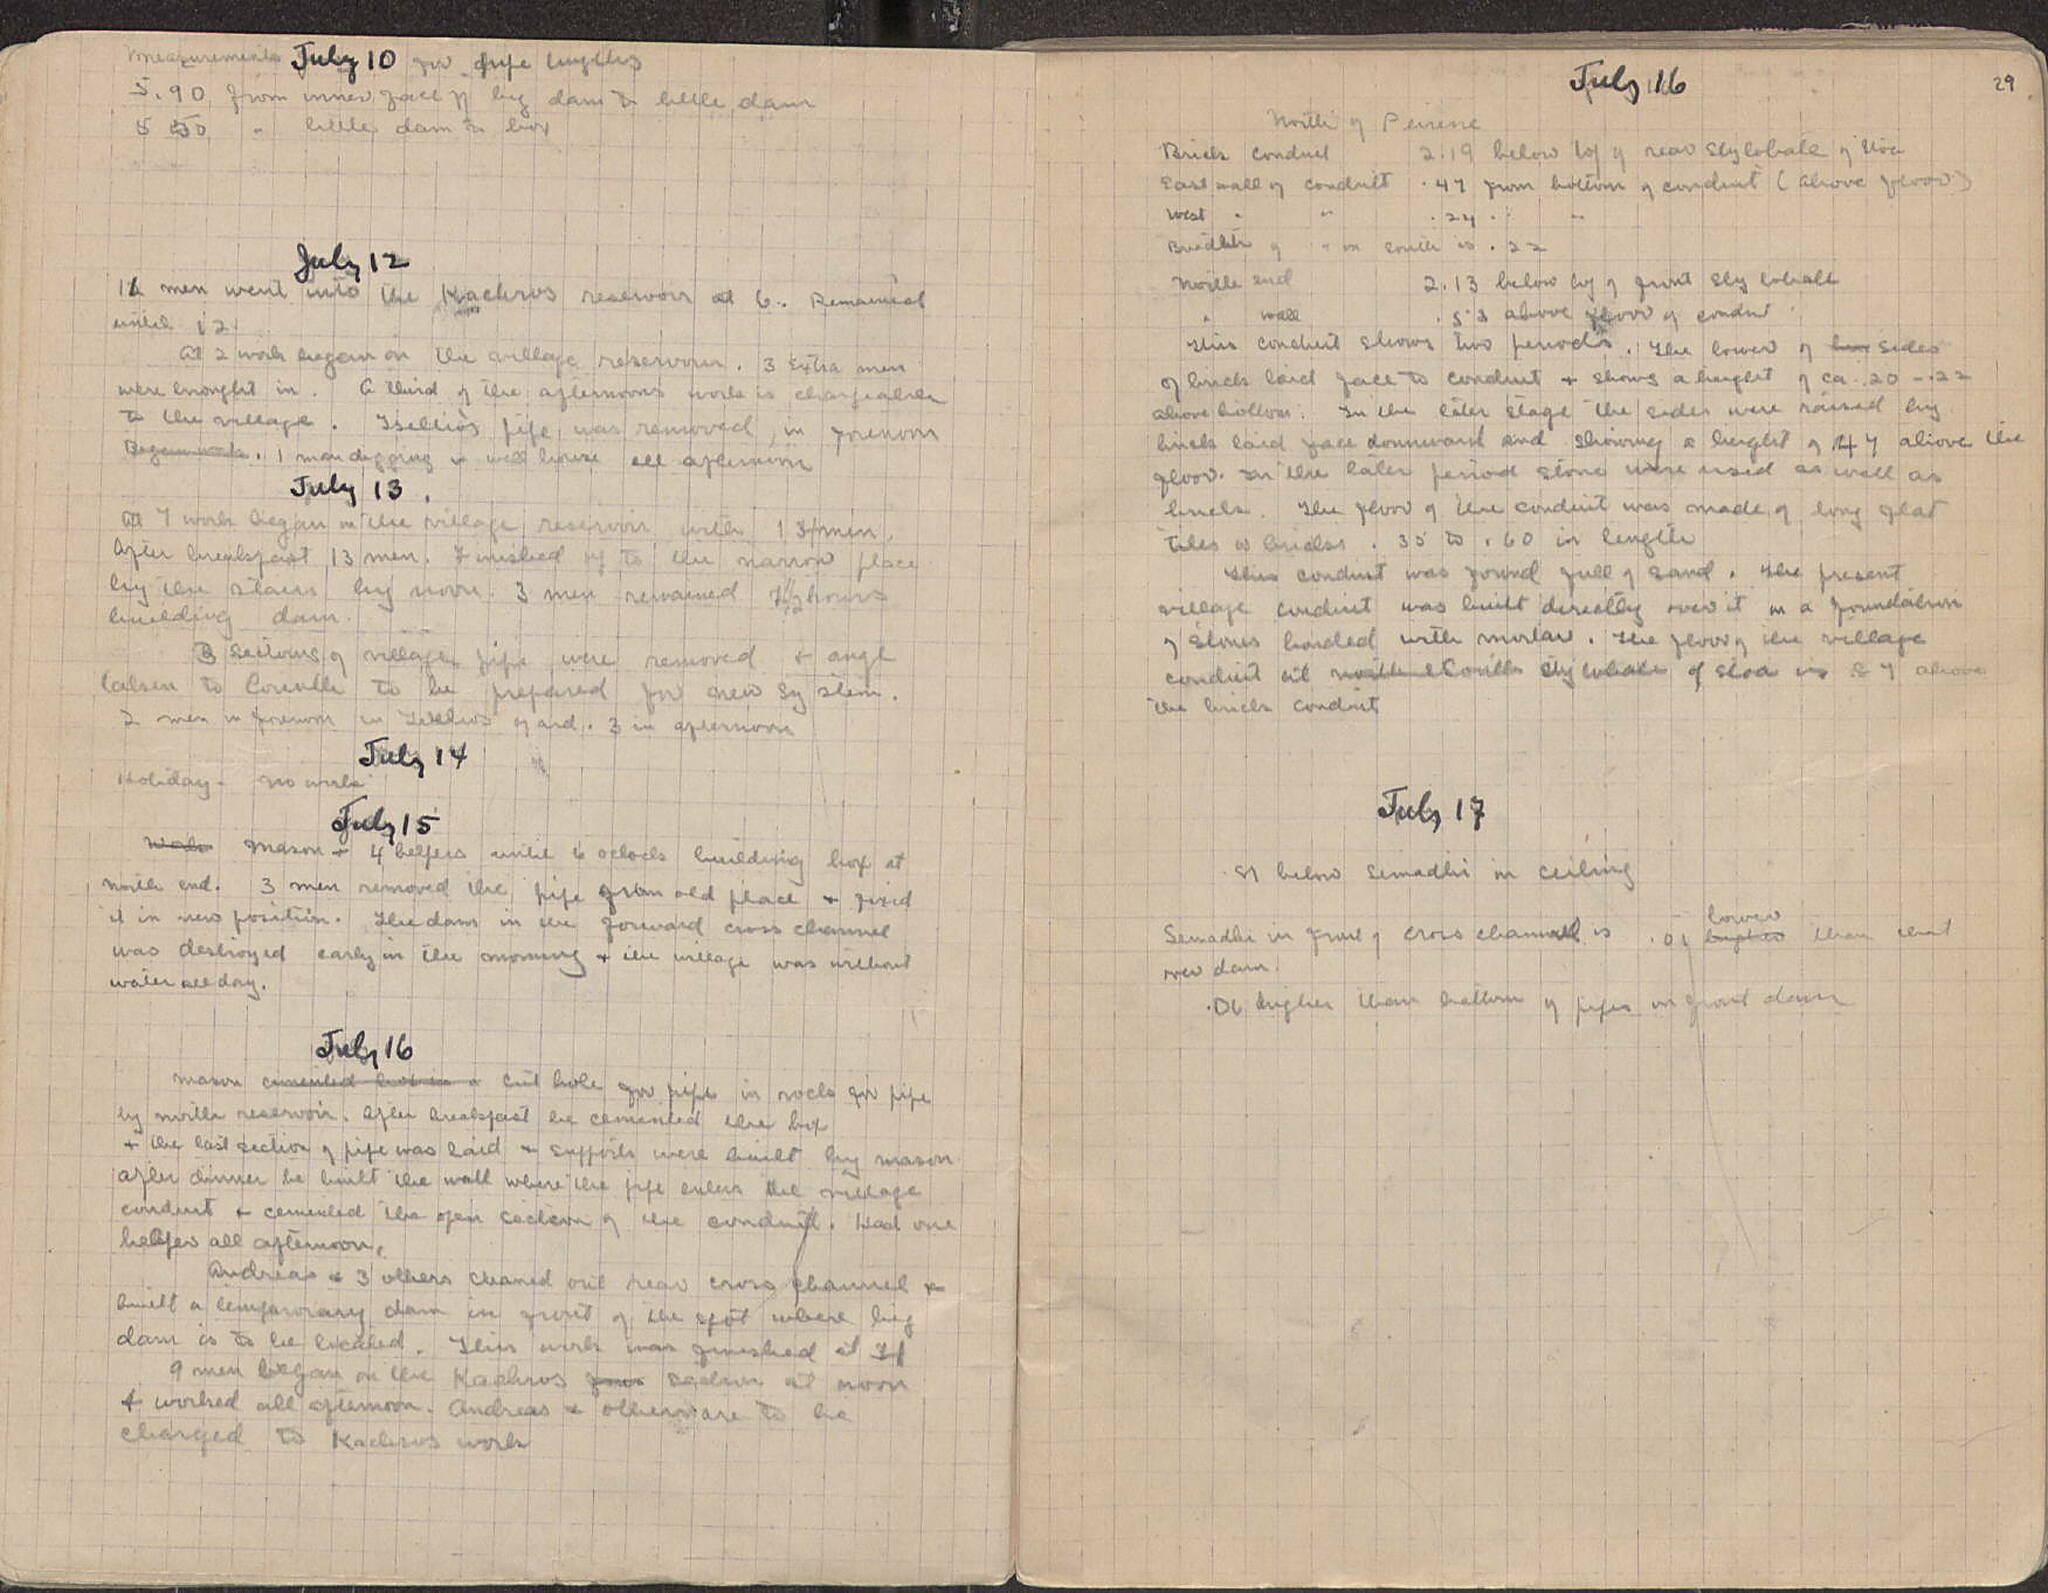 Measurements July 10 for pipe lengths
5.90 from inner face of big dam to little dam
5 50 " little dam to box
July 12
men went into the Kachros reservoir at 6. Remained
until 12.
At 2 work began on the village reservoir. 3 extra men
were brought in. A third of the afternoons work is chargeable
to the village. pipe was removed in forenoon
Began work. 1 man digging in well house all afternoon
July 13.
At 7 work began in the village reservoir with 13 men.
After breakfast 13 men. Finished up to the narrow place
by the stairs by noon. 3 men remained hours
building dam.
3 sections of village pipe were removed & angl
taken to Corinth to be prepared for new system.
2 men in forenoon in yard. 3 in afternoon
July 14
Holiday - no work
July 15
Work Mason & 4 helpers until 6 oclock building box at
north end. 3 men removed the pipe from old place & fixed
it in new position. The dam in the forward cross channel
was destroyed early in the morning & the village was without
water all day.
July 16
Mason cemented box in a cut hole for pipe in rock for pipe
by north reservoir. After breakfast he cemented the box
& the last section of pipe was laid & supports were built by mason
After dinner he built the wall where the pipe enters the village
conduit & cemented the open section of the conduit. Had one
helper all afternoon.
Andreas & 3 others cleaned out rear cross channel &
built a temporary dam in front of the spot where big
dam is to be located. This work was finished at
9 men began on the Kachros section at noon
& worked all afternoon. Andreas & others are to be
charged to Kachros work
July 16
29
North of Peirene
Brick conduit 2.19 below top of rear stylobate of stoa
East wall of conduit .47 from bottom of conduit (above floor)
West " " .24 " "
Breadth of " on south is .22
North end 2.13 below top of front stylobate
" wall .53 above floor of conduit
This conduit shows two periods. The lower of sides
of brick laid face to conduit & shows a height of ca .20 - .22
above bottom. In the later stage the sides were raised by
brick laid face downward and showing a height of .47 above the
floor. In the later period stone were used as well as
brick. The floor of the conduit was made of long flat
tiles or bricks .35 to .60 in length
This conduit was found full of sand. The present
village conduit was built directly over it on a foundation
of stones bonded with mortar. The floor of the village
conduit at north & south stylobate of stoa is .87 above
the brick conduit
July 17
below Semadhi in ceiling
Semadhi in front of cross channel is .01 higher lower than that
over dam.
.06 higher than bottom of pipes in front dam